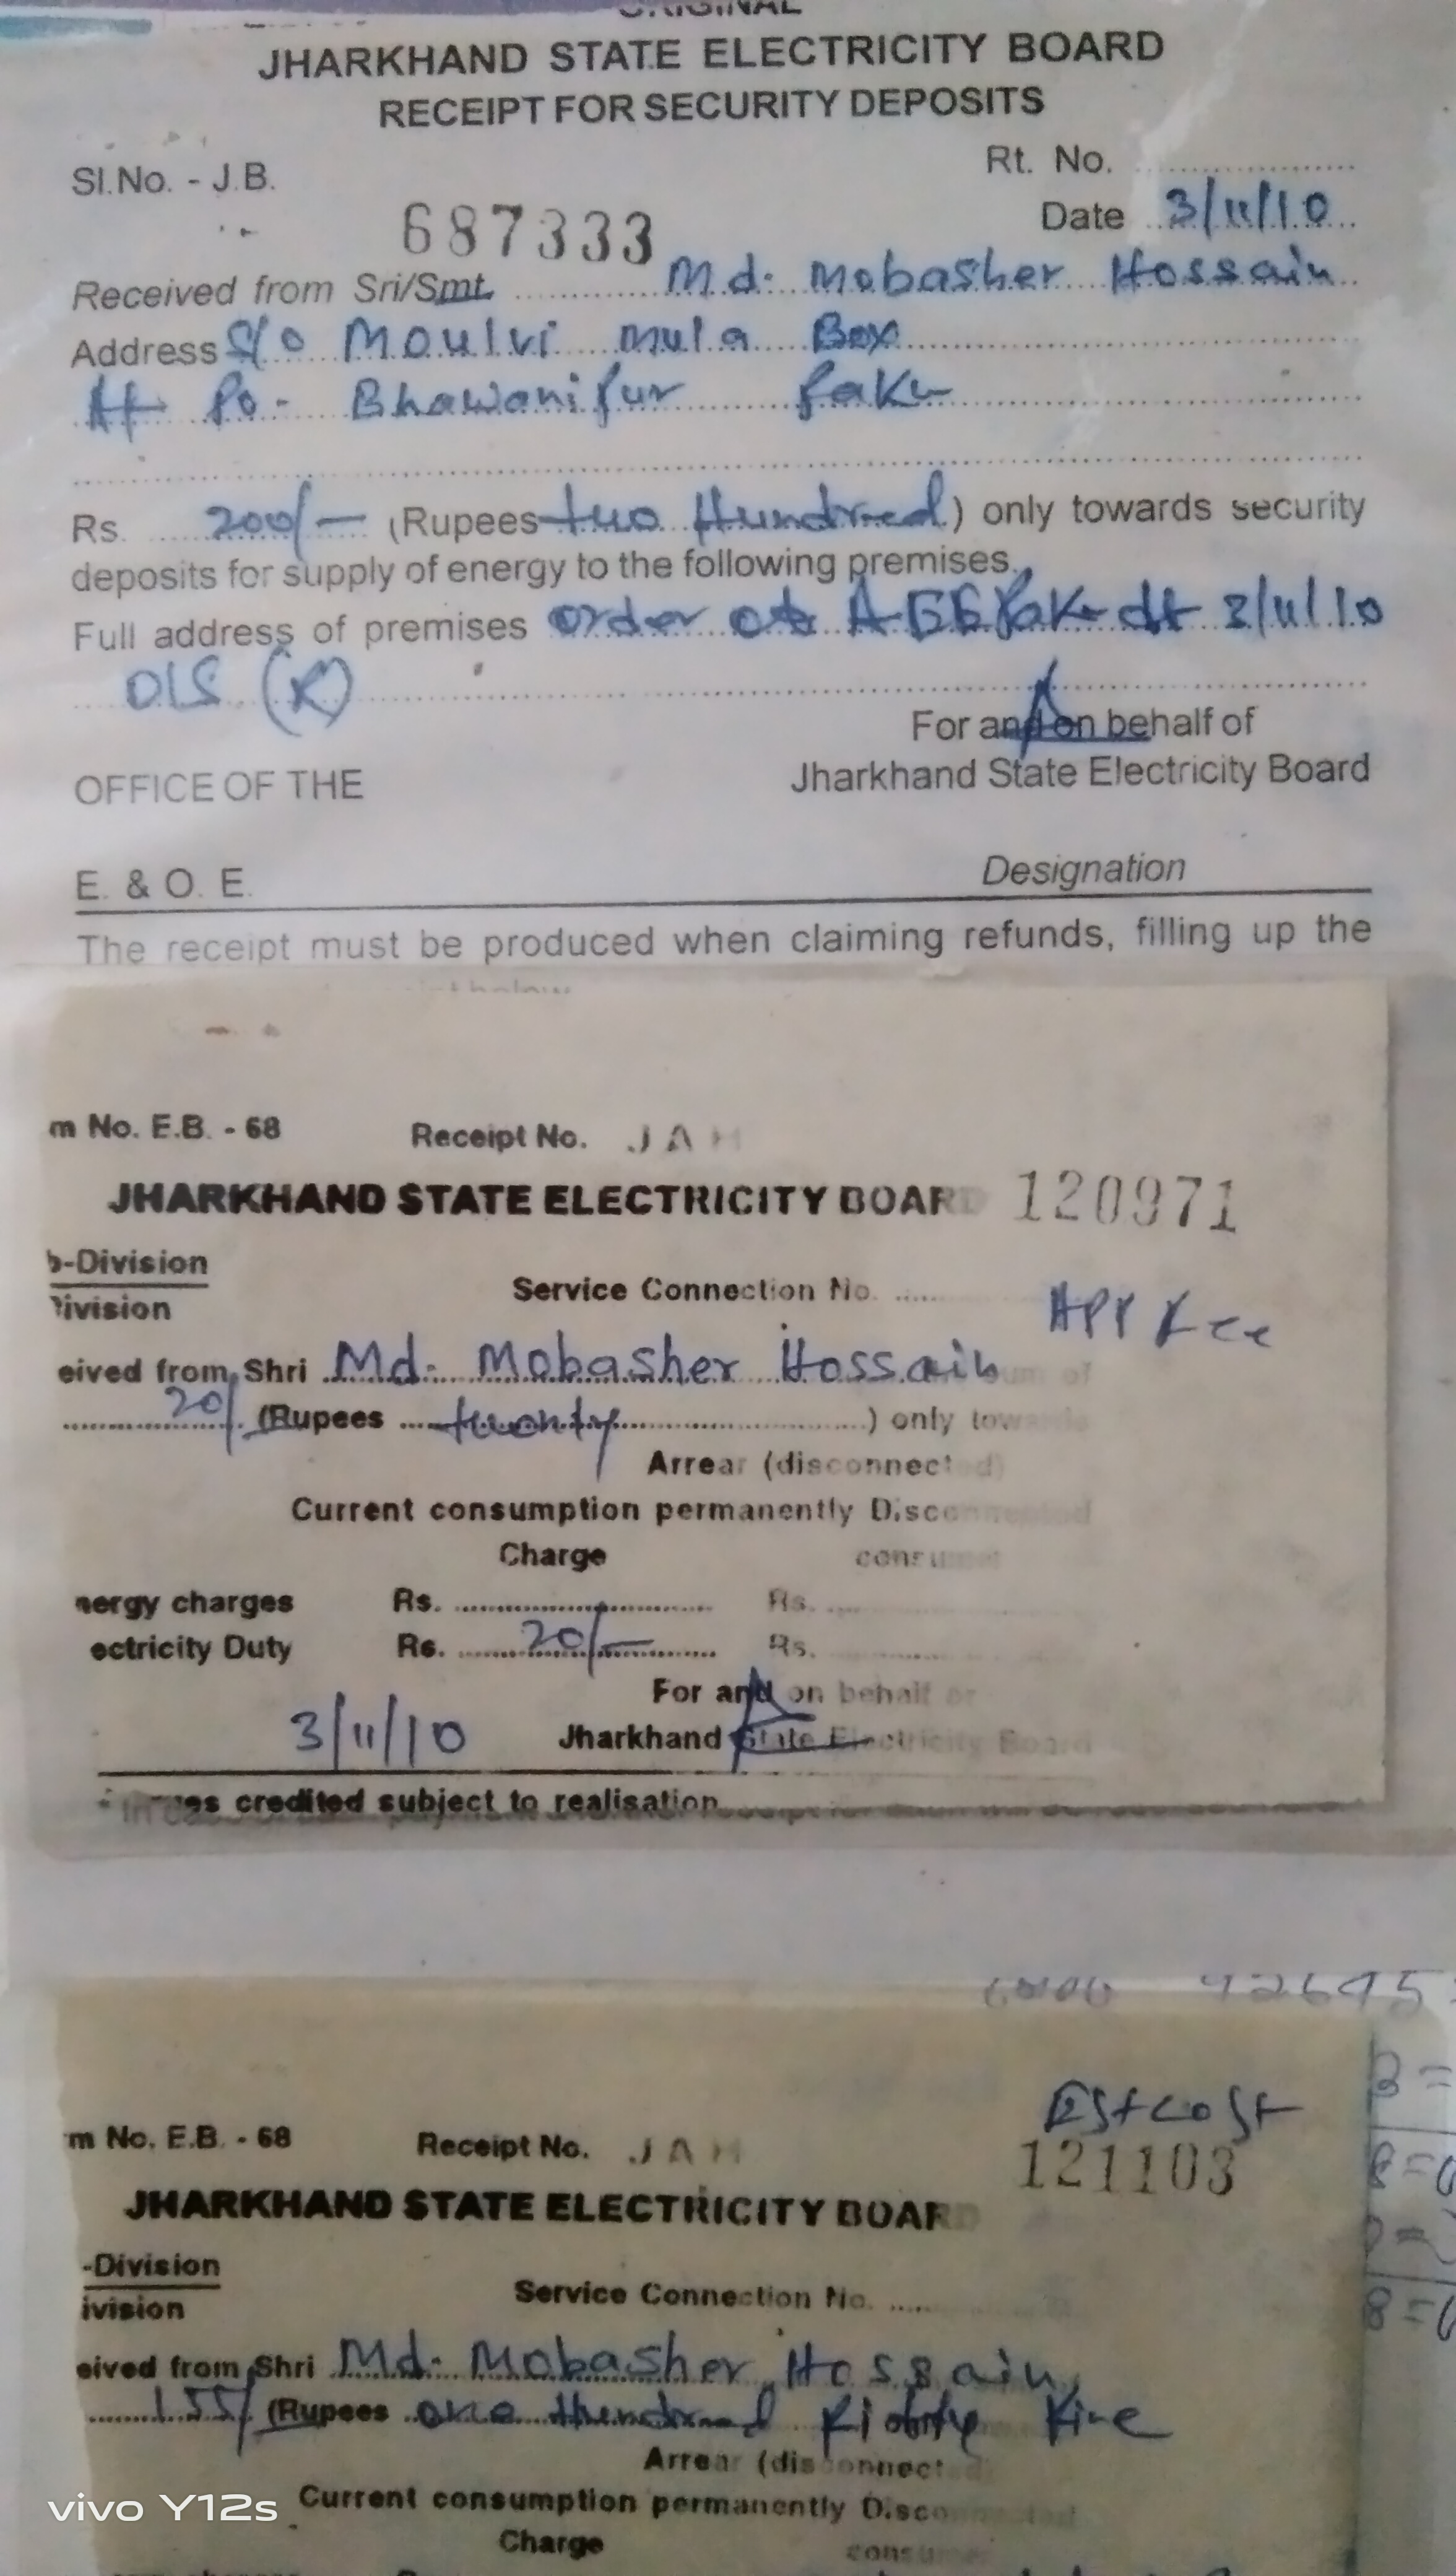 ORIGINAL
JHARKHAND STATE ELECTRICITY BOARD
RECEIPT FOR SECURITY DEPOSITS
Rt. No. ....................
Sl.No. - J.B.
Date 3/11/10
687333
Received from Sri/Smt. Md. Mobasher Hossain
Address S/o Moulvi mula Box
At Po- Bhawanipur Pakur
Rs. 200/- (Rupees two Hundred) only towards security
deposits for supply of energy to the following premises.
Full address of premises order of AEE Pakur dt 3/11/10
DIS (K)
For and on behalf of
Jharkhand State Electricity Board
OFFICE OF THE
Designation
E. & O. E.
The receipt must be produced when claiming refunds, filling up the
m No. E.B. - 68 Receipt No. JAH
JHARKHAND STATE ELECTRICITY BOARD 120971
b-Division
Division
Service Connection No. ......
APP Fee
eived from Shri Md. Mobasher Hossain sum of
20/- (Rupees twenty ) only towards
Arrear (disconnected)
Current consumption permanently Disconnected
Charge consumer
nergy charges Rs. .................... Rs. ....................
ectricity Duty Rs. 20/- Rs. ....................
For and on behalf of
3/11/10 Jharkhand State Electricity Board
es credited subject to realisation
42645
Est cost
m No. E.B. - 68 Receipt No. JAH
121103
JHARKHAND STATE ELECTRICITY BOARD
-Division
ivision
Service Connection No. ......
eived from Shri Md. Mobasher Hossain
155/- (Rupees one Hundred Fifty Five
Arrear (disconnected
Current consumption permanently Disconnected
Charge consumer
vivo Y12s